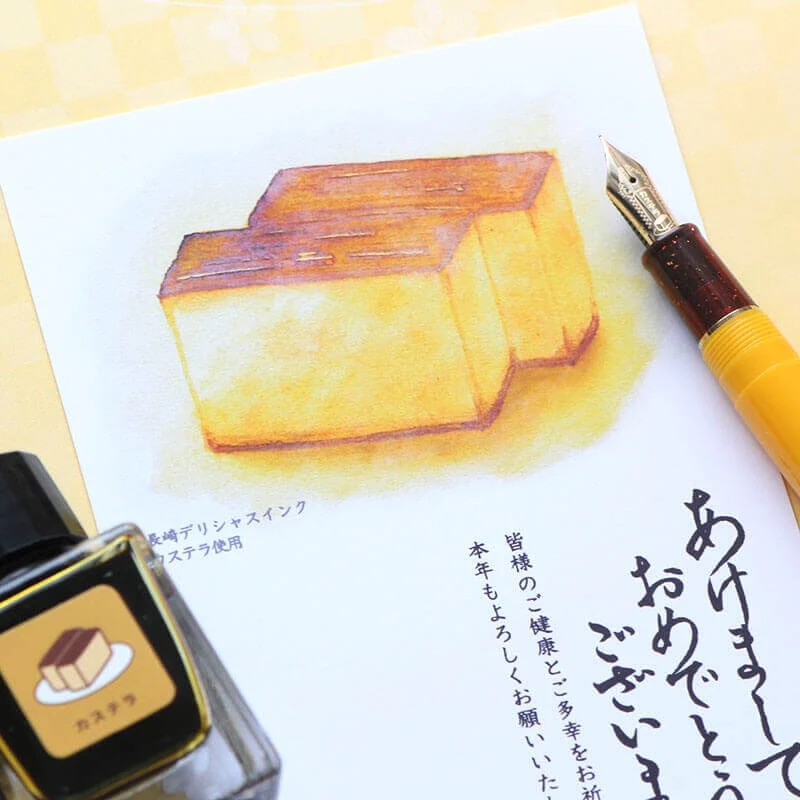 長崎デリシャスインク
カステラ使用
あけまして
おめでとう
ございま
皆様のご健康とご多幸をお祈
本年もよろしくお願いいた
カステラ